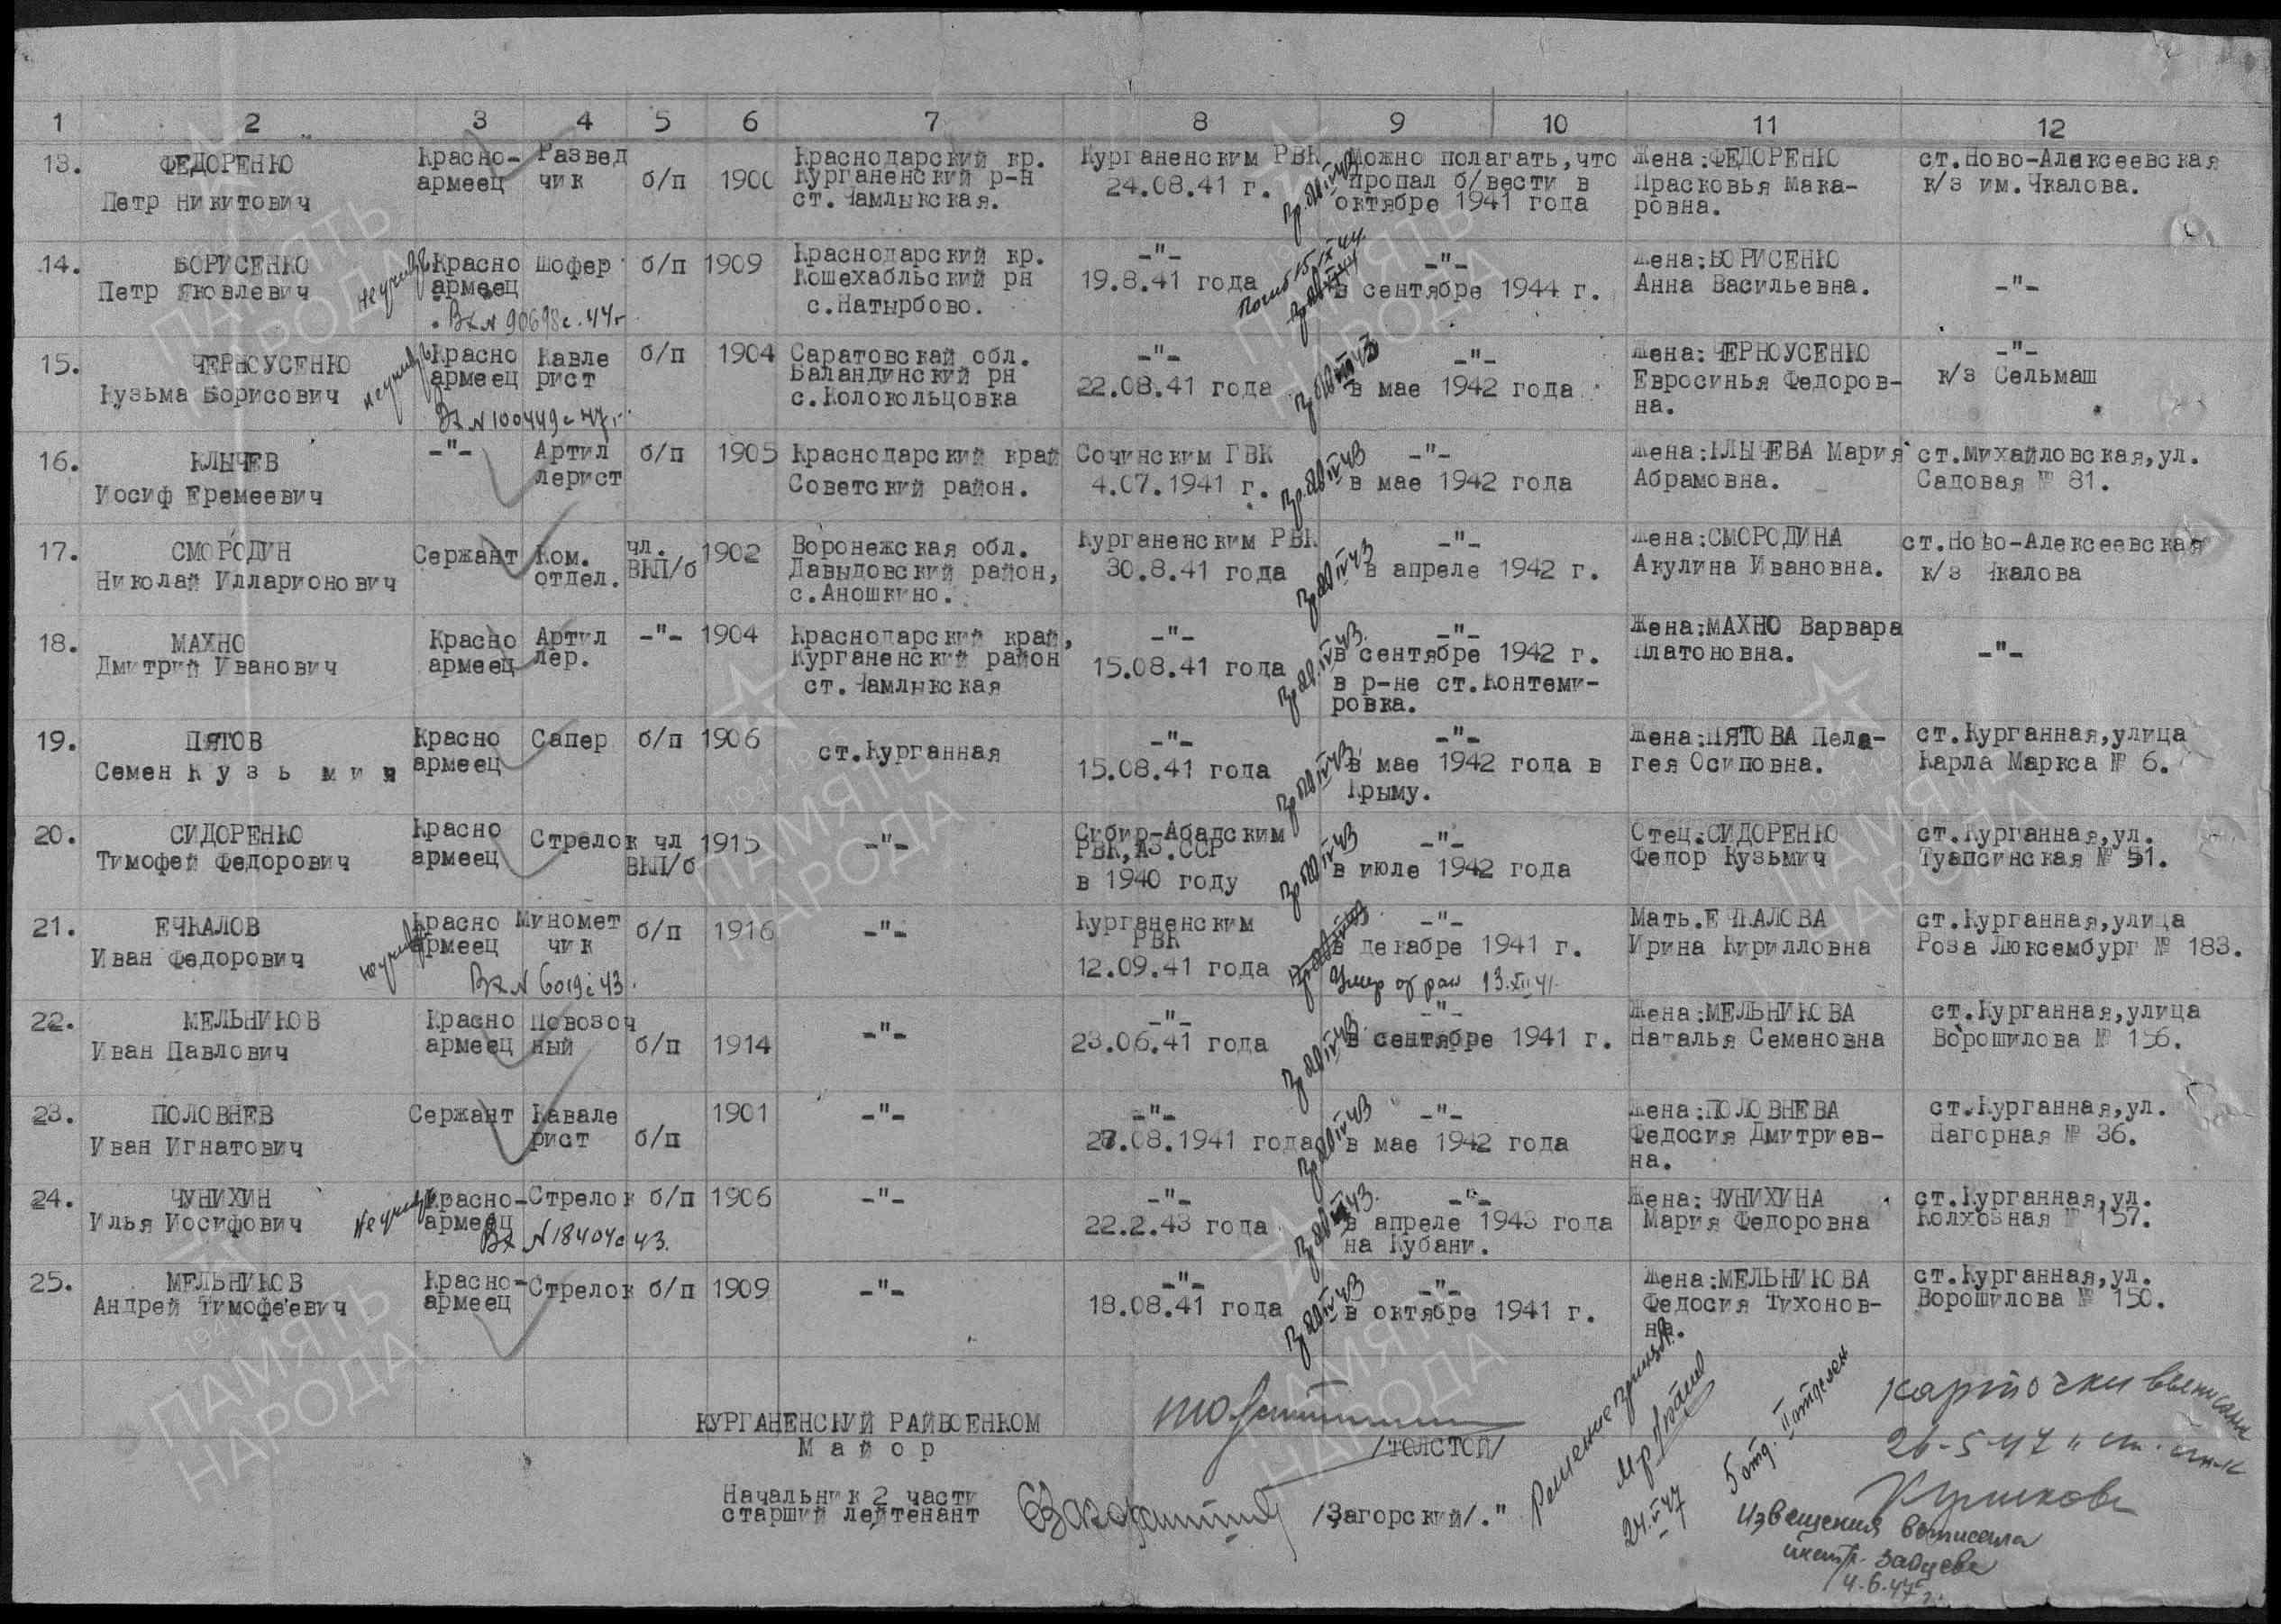 1 2 3 4 5 6 7 8 9 10 11 12
13. ФЕДОРЕНКО Красно- Развед б/п 1900 Краснодарский кр. Курганенским РВК Можно полагать, что Жена:ФЕДОРЕНКО ст.Ново-Алексеевская
Петр Никитович армеец чик Курганенский р-н 24.08.41 г. пропал б/вести в Прасковья Мака- к/з им.Чкалова.
ст.Чамлыкская. октябре 1941 года ровна.
14. БОРИСЕНКО Красно Шофер б/п 1909 Краснодарский кр. -"- -"- Жена:БОРИСЕНКО
Петр Яковлевич армеец Кошехабльский рн 19.8.41 года в сентябре 1944 г. Анна Васильевна. -"-
Вх N 90698с.44г с.Натырбово. Погиб 15.IX 44.
15. ЧЕРНОУСЕНКО Красно Кавле б/п 1904 Саратовскай обл. -"- -"- Жена:ЧЕРНОУСЕНКО -"-
Кузьма Борисович армеец рист Баландинский рн 22.08.41 года в мае 1942 года Евросинья Федоров- к/з Сельмаш
Вх N 100449с 47г. с.Колокольцовка на.
16. КЛЫЧЕВ -"- Артил б/п 1905 Краснодарский край Сочинским ГВК -"- Жена:КЛЫЧЕВА Мария ст.Михайловская,ул.
Иосиф Еремеевич лерист Советский район. 4.07.1941 г. в мае 1942 года Абрамовна. Садовая № 81.
17. СМОРОДИН Сержант Ком. чл. 1902 Воронежская обл. Курганенским РВК -"- Жена:СМОРОДИНА ст.Ново-Алексеевская
Николай Илларионович отдел. ВКП/б Давыдовский район, 30.8.41 года в апреле 1942 г. Акулина Ивановна. к/з Чкалова
с.Аношкино.
18. МАХНО Красно Артил -"- 1904 Краснодарский край, -"- -"- Жена:МАХНО Варвара
Дмитрий Иванович армеец лер. Курганенский район 15.08.41 года в сентябре 1942 г. Платоновна. -"-
ст.Чамлыкская в р-не ст.Контеми-
ровка.
19. ПЯТОВ Красно Сапер б/п 1906 ст.Курганная -"- -"- Жена:ПЯТОВА Пела- ст.Курганная,улица
Семен Кузьмич армеец 15.08.41 года в мае 1942 года в гея Осиповна. Карла Маркса № 6.
Крыму.
20. СИДОРЕНКО Красно Стрелок чл 1915 -"- Сибир-Абадским -"- Отец.СИДОРЕНКО ст.Курганная,ул.
Тимофей Федорович армеец ВКП/б РВК,АЗ.ССР в июле 1942 года Федор Кузьмич Туапсинская № 51.
в 1940 году
21. ЕЧКАЛОВ Красно Миномет б/п 1916 -"- Курганенским -"- Мать.ЕЧКАЛОВА ст.Курганная,улица
Иван Федорович армеец чик РВК в декабре 1941 г. Ирина Кирилловна Роза Люксембург № 183.
Вх N 6019с 43. 12.09.41 года Умер от ран 13.XII 41.
22. МЕЛЬНИКОВ Красно Повозоч б/п 1914 -"- -"- -"- Жена:МЕЛЬНИКОВА ст.Курганная,улица
Иван Павлович армеец ный 23.06.41 года в сентябре 1941 г. Наталья Семеновна Ворошилова № 156.
23. ПОЛОВНЕВ Сержант Кавале б/п 1901 -"- -"- -"- Жена:ПОЛОВНЕВА ст.Курганная,ул.
Иван Игнатович рист 27.08.1941 года в мае 1942 года Федосия Дмитриев- Нагорная № 36.
на.
24. ЧУНИХИН Красно- Стрелок б/п 1906 -"- -"- -"- Жена: ЧУНИХИНА ст.Курганная,ул.
Илья Иосифович армеец 22.2.43 года в апреле 1943 года Мария Федоровна Колхозная № 157.
Вх N 18404с 43. на Кубани.
25. МЕЛЬНИКОВ Красно- Стрелок б/п 1909 -"- -"- -"- Жена:МЕЛЬНИКОВА ст.Курганная,ул.
Андрей Тимофеевич армеец 18.08.41 года в октябре 1941 г. Федосия Тихонов- Ворошилова № 150.
на.
КУРГАНЕНСКИЙ РАЙВОЕНКОМ
Майор /ТОЛСТОЙ/
Начальник 2 части
старший лейтенант /Загорский/."
24.V 47
5 отд. II отделен
карточки выписаны
26-5-47
Куликова
Извещения выписала
инстр. Зайцева
4.6.47 г.
ПАМЯТЬ
НАРОДА